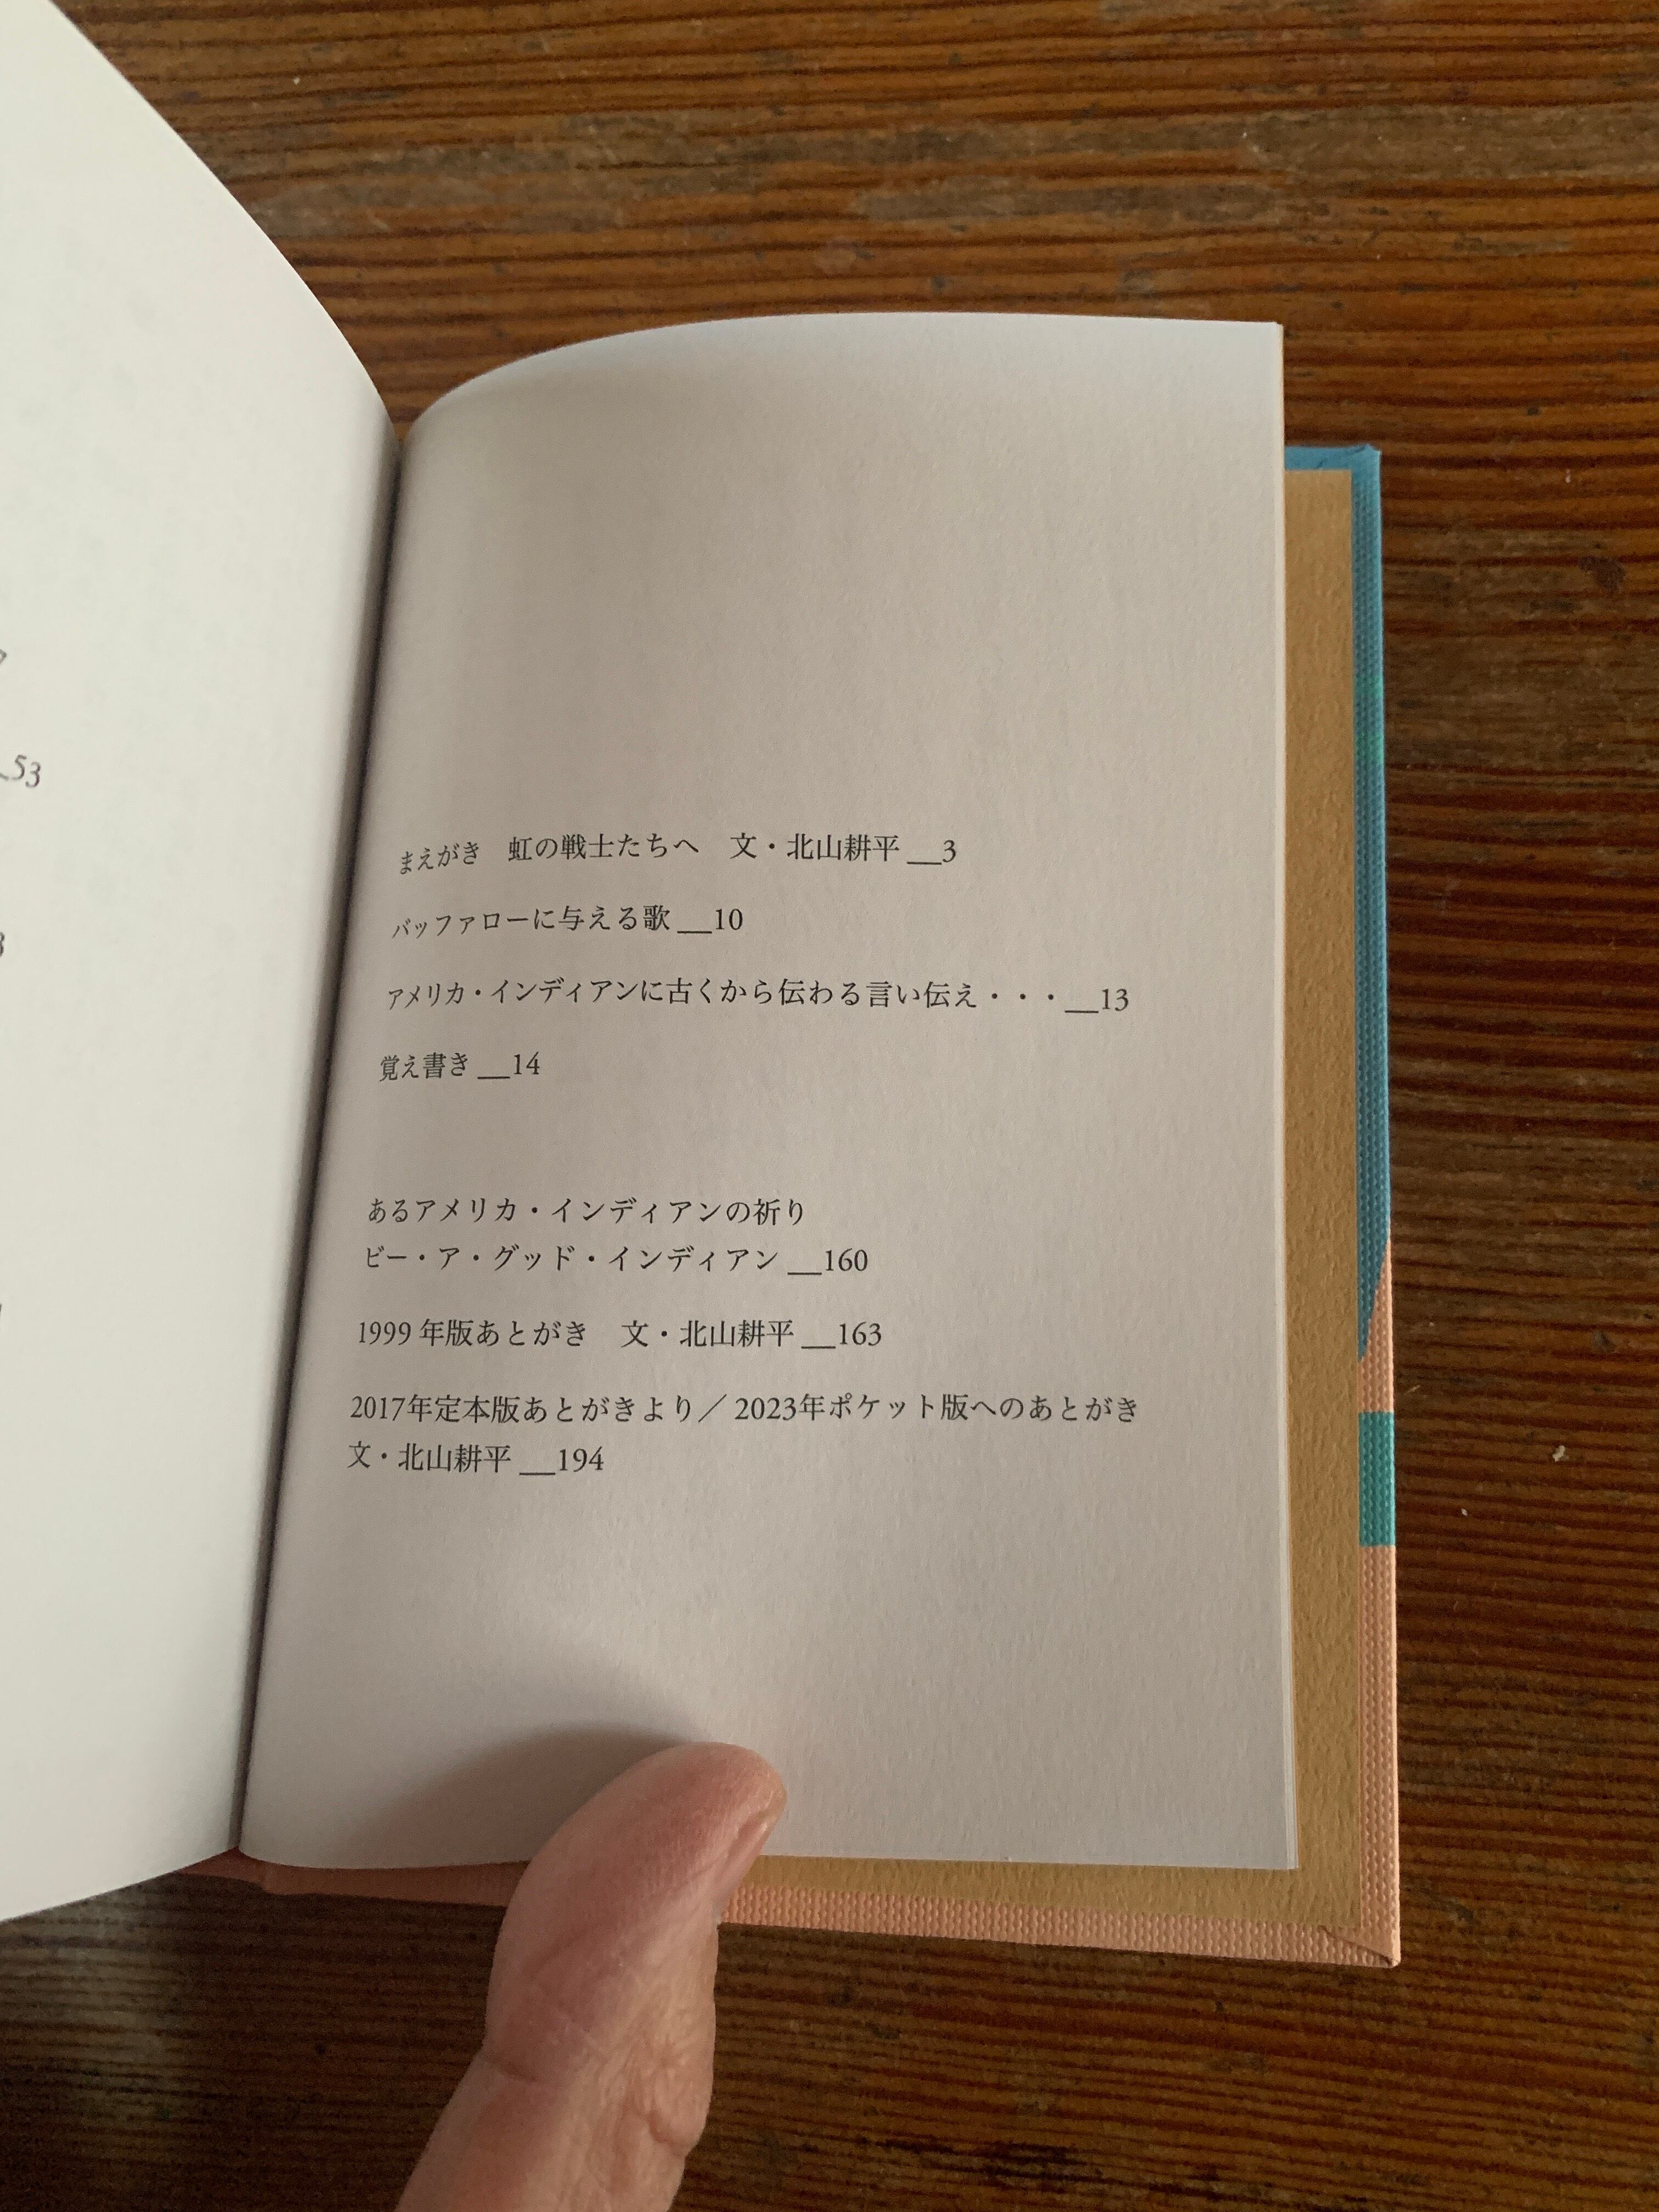 53
まえがき　虹の戦士たちへ　文・北山耕平__3
バッファローに与える歌__10
アメリカ・インディアンに古くから伝わる言い伝え・・・__13
覚え書き__14
あるアメリカ・インディアンの祈り
ビー・ア・グッド・インディアン__160
1999年版あとがき　文・北山耕平__163
2017年定本版あとがきより／2023年ポケット版へのあとがき
文・北山耕平__194